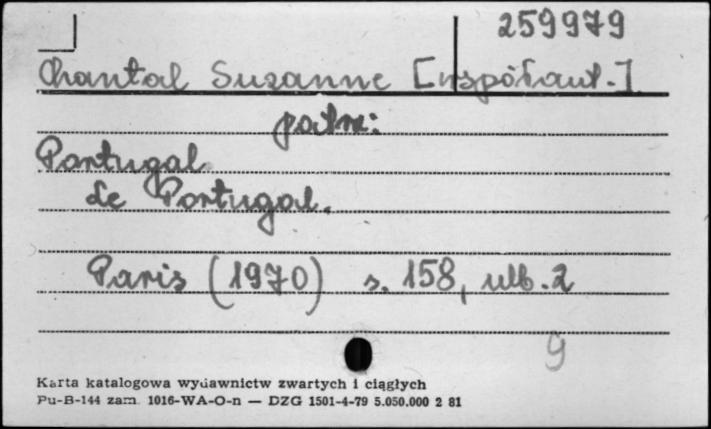 259979
Chantal Suzanne [współaut.]
patrz:
Portugal
Le Portugal.
Paris (1970) s. 158, ulb. 2
9
Karta katalogowa wydawnictw zwartych i ciągłych
Pu-B-144 zam. 1016-WA-O-n — DZG 1501-4-79 5.050.000 2 81